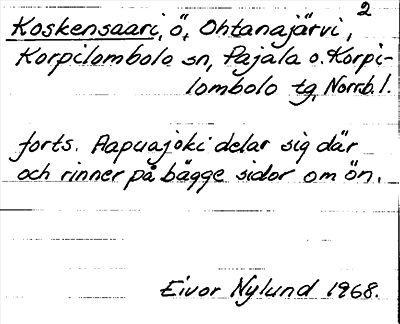 2
Koskensaari, ö, Ohtanajärvi,
Korpilombolo sn, Pajala o. Korpi-
lombolo tg, Norrb. l.
forts. Aapuajoki delar sig där
och rinner på bägge sidor om ön.
Eivor Nylund 1968.